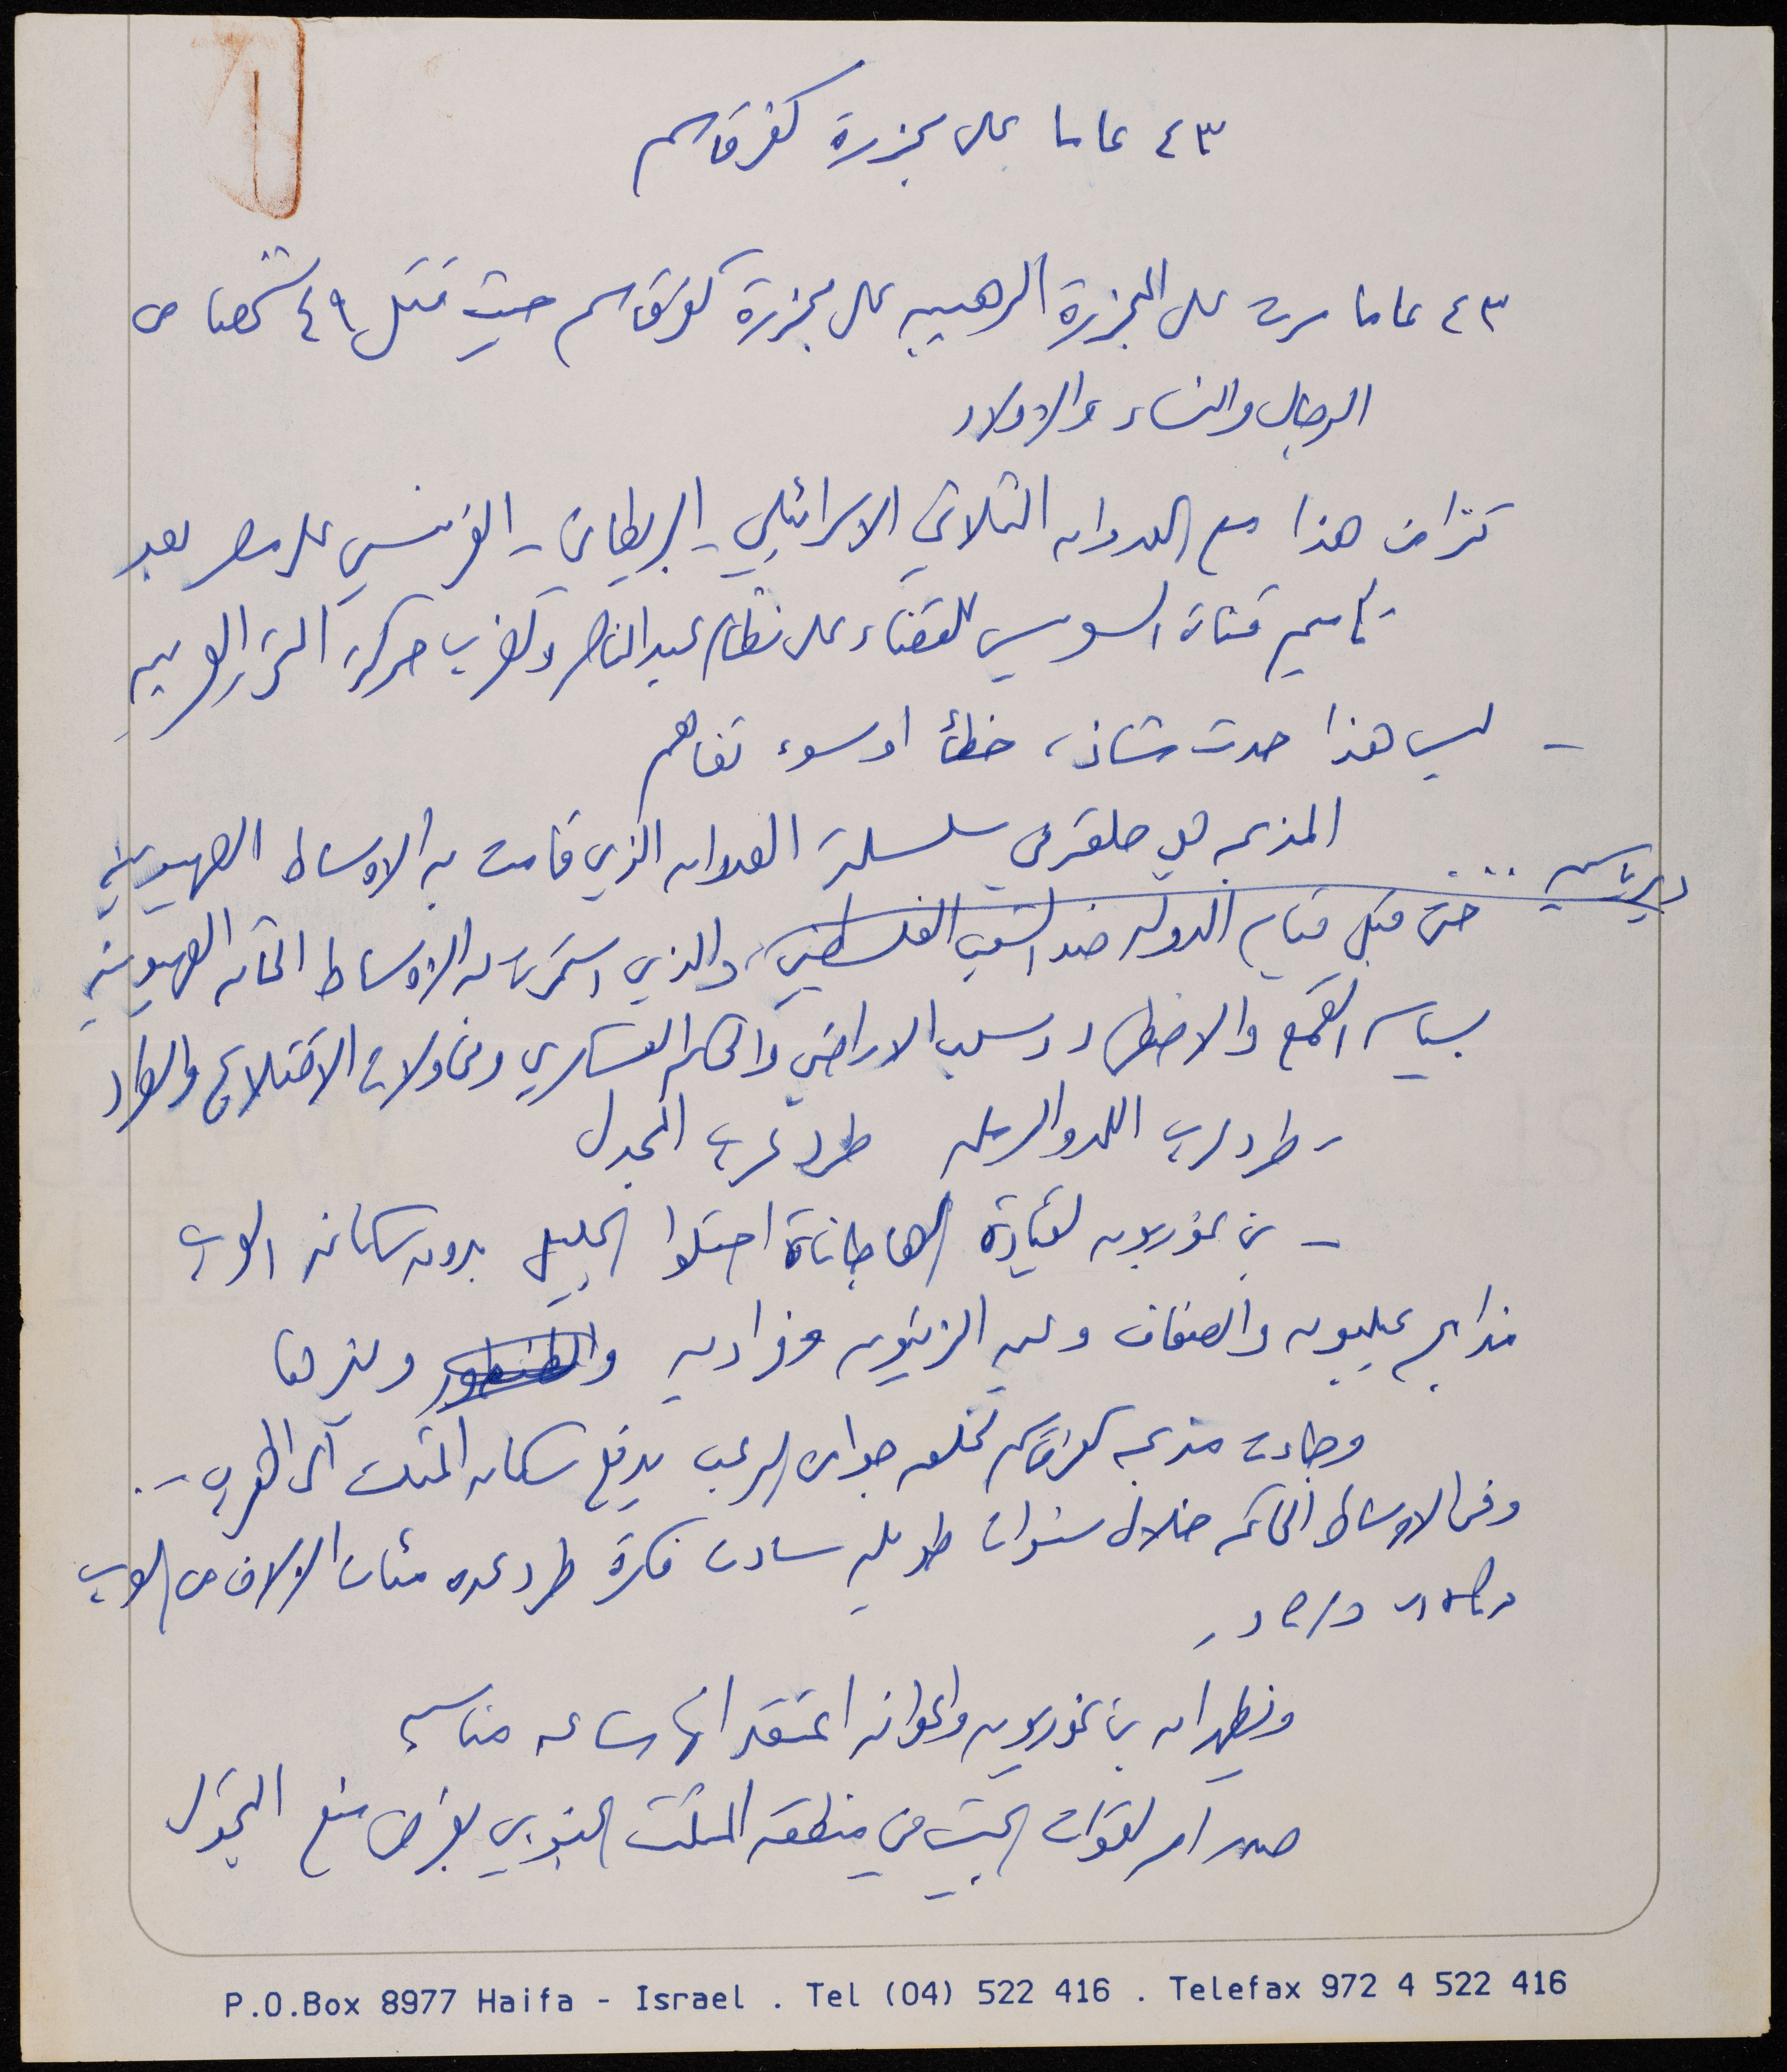 ٤٣ عاما على مجزرة كفرقاسم
٤٣ عاما مرت على المجزرة الرهيبه على مجزرة كفرقاسم حيث قتل ٤٩ شخصا من
الرجال والنساء والاولاد
تزامن هذا مع العدوان الثلاثي الاسرائيلي - البريطاني - الفرنسي على مصر بعد
تاميم قناة السويس للقضاء على نظام عبد الناصر ولضرب حركة التحرر العربيه
- ليس هذا حدث شاذ، خطأ او سوء تفاهم
المذبحه هي حلقة في سلسلة العدوان الذي قامت به الاوساط الصهيونيه
ديرياسين ...
حتى قبل قيام الدوله ضد الشعب الفلسطيني، والذي استمرت به الاوساط الحاكمه الصهيونيه
بسياسة القمع والاضطهاد وسلب الاراضي والحكم العسكري ومحاولات الاقتلاع والطرد
- طرد عرب اللد والرمله طرد عرب المجدل
- بن غوريون لقيادة الهاجاناة احتلوا الجليل بدون سكانه العرب
مذابح عيلبون والصفصاف وعين الزيتون وغيرها
وجاءت مذبحه كفرقاسم لخلق جو من الرعب يدفع سكان المثلث الى الهرب -.
وفي الاوساط الحاكمه خلال سنوات طويله سادت فكرة طرد عدة مئات الالاف من العرب
ويظهر ان بن غوريون واعوانه اعتقد انها ساعه مناسبه
صدر امر لقوات الجيش في منطقة المثلث الجنوبي بفرض منع التجول
P.O.Box 8977 Haifa - Israel . Tel (04) 522 416 . Telefax 972 4 522 416